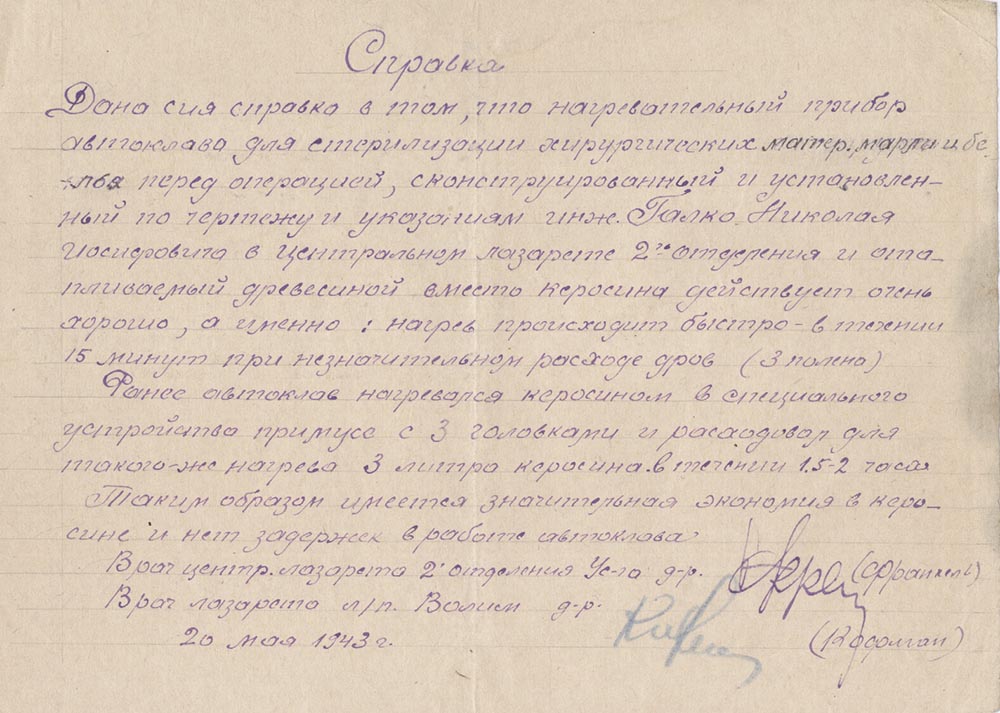 Справка
Дана сия справка в том, что нагревательный прибор
автоклава для стерилизации хирургических матер. марли и бе-
лья перед операцией, сконструированный и установлен-
ный по чертежу и указаниям инж. Галко Николая
Иосифовича в Центральном лазарете 2го отделения и ота-
пливаемый древесиной вместо керосина действует очень
хорошо, а именно: нагрев происходит быстро - в течении
15 минут при незначительном расходе дров (3 полена)
Ранее автоклав нагревался керосином в специального
устройства примусе с 3 головками и расходовал для
такого-же нагрева 3 литра керосина в течении 1.5-2 часа
Таким образом имеется значительная экономия в керо-
сине и нет задержек в работе автоклава
Врач центр. лазарета 2 отделения Ус-га д-р. (Франкель)
Врач лазарета л/п. Волим д-р.
20 мая 1943 г.